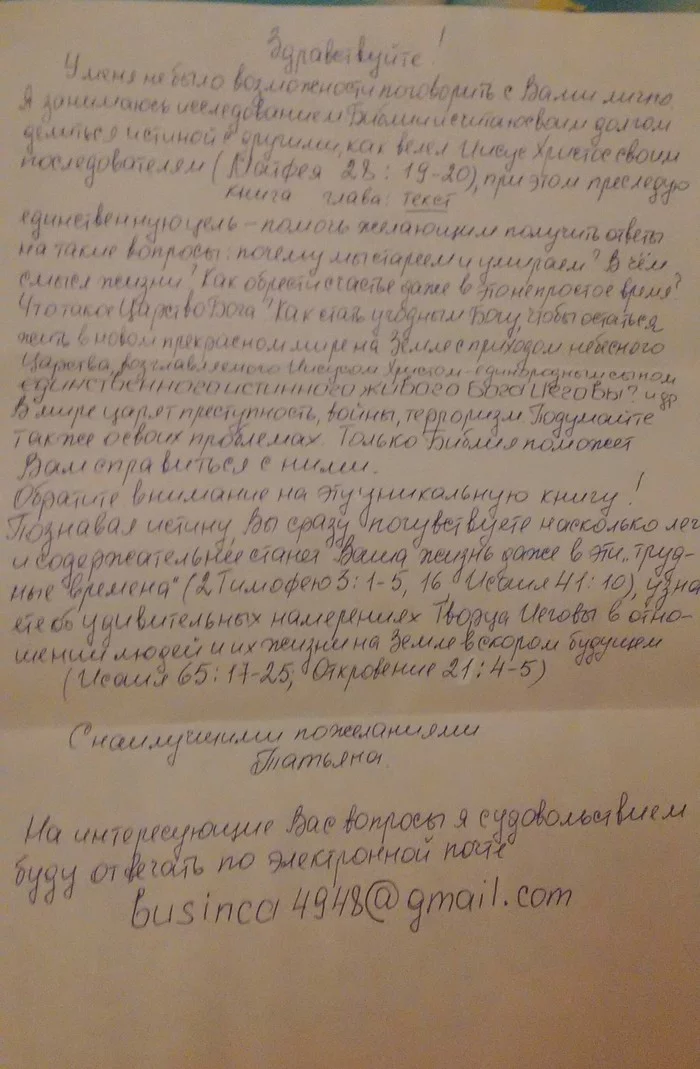 Здравствуйте!
У меня не было возможности поговорить с Вами лично.
Я занимаюсь исследованием Библии и считаю своим долгом
делиться истиной с другими, как велел Иисус Христос своим
последователям (Матфея 28:19-20), при этом преследую
книга глава: текст
единственную цель – помочь желающим получить ответы
на такие вопросы: почему мы стареем и умираем? В чём
смысл жизни? Как обрести счастье даже в это непростое время?
Что такое Царство Бога? Как стать угодным Богу, чтобы остаться
жить в новом прекрасном мире на Земле с приходом небесного
Царства, возглавляемого Иисусом Христом – единородным сыном
единственного истинного живого Бога Иеговы? и др
В мире царят преступность, войны, терроризм. Подумайте
также о своих проблемах. Только Библия поможет
Вам справиться с ними.
Обратите внимание на эту уникальную книгу!
Познавая истину, Вы сразу почувствуете насколько лег
и содержательнее станет Ваша жизнь даже в эти „труд-
ные времена" (2 Тимофею 3:1-5, 16, Исаия 41:10), узна
ете об удивительных намерениях Творца Иеговы в отно-
шении людей и их жизни на Земле в скором будущем
(Исаия 65:17-25; Откровение 21:4-5)
С наилучшими пожеланиями
Татьяна.
На интересующие Вас вопросы я с удовольствием
буду отвечать по электронной почте
businca4948@gmail.com